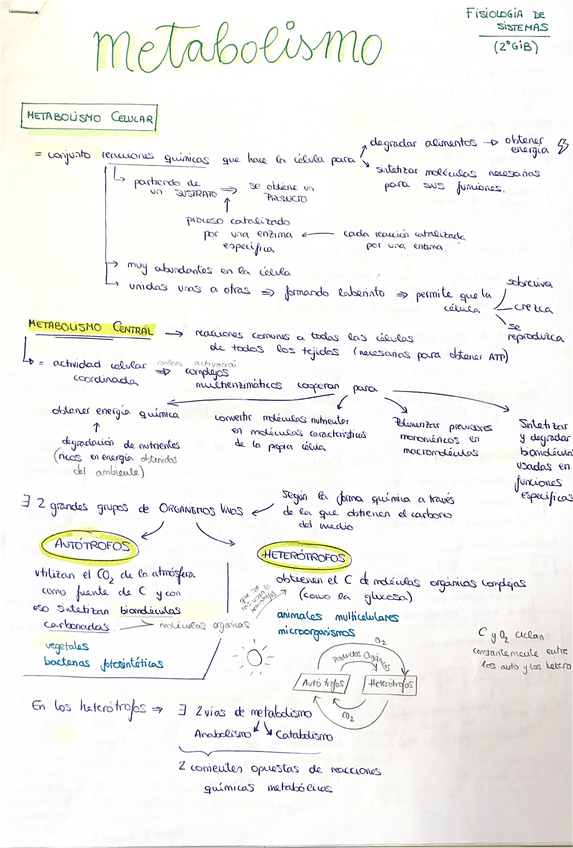 FISIOLOGÍA DE
SISTEMAS
(2ºGIB)
metabolismo
METABOLISMO CELULAR
= conjunto reacciones químicas que hace la célula para
degradar alimentos → obtener
energía
sintetizar moléculas necesarias
para sus funciones.
partiendo de
un SUSTRATO ⇒ se obtiene un
PRODUCTO
proceso catalizado
por una enzima
específica
← cada reacción catalizada
por una enzima.
→ muy abundantes en la célula
→ unidas unas a otras ⇒ formando laberinto ⇒ permite que la
célula
sobreviva
crezca
se
reproduzca
METABOLISMO CENTRAL → reacciones comunes a todas las células
de todos los tejidos (necesarias para obtener ATP)
= actividad celular
coordinada
conlleva activación
⇒ complejos
multienzimáticos cooperan para
obtener energía química
↑
degradación de nutrientes
(ricos en energía obtenidos
del ambiente)
convertir moléculas nutrientes
en moléculas características
de la propia célula
Polimerizar precursores
monoméricos en
macromoléculas
Sintetizar
y degradar
biomoléculas
usadas en
funciones
específicas
∃ 2 grandes grupos de ORGANISMOS VIVOS
según la forma química a través
de la que obtienen el carbono
del medio
AUTÓTROFOS
utilizan el CO2 de la atmósfera
como fuente de C y con
eso sintetizan biomoléculas
carbonadas. → moléculas orgánicas
vegetales
bacterias fotosintéticas
HETERÓTROFOS
obtienen el C de moléculas orgánicas complejas
(como la glucosa)
animales multicelulares
microorganismos
O2
Productos Orgánicos
Autótrofos
Heterótrofos
CO2
C y O2 ciclan
constantemente entre
los auto y los hetero
En los heterótrofos ⇒ ∃ 2 vías de metabolismo
Anabolismo
Catabolismo
2 corrientes opuestas de reacciones
químicas metabólicas